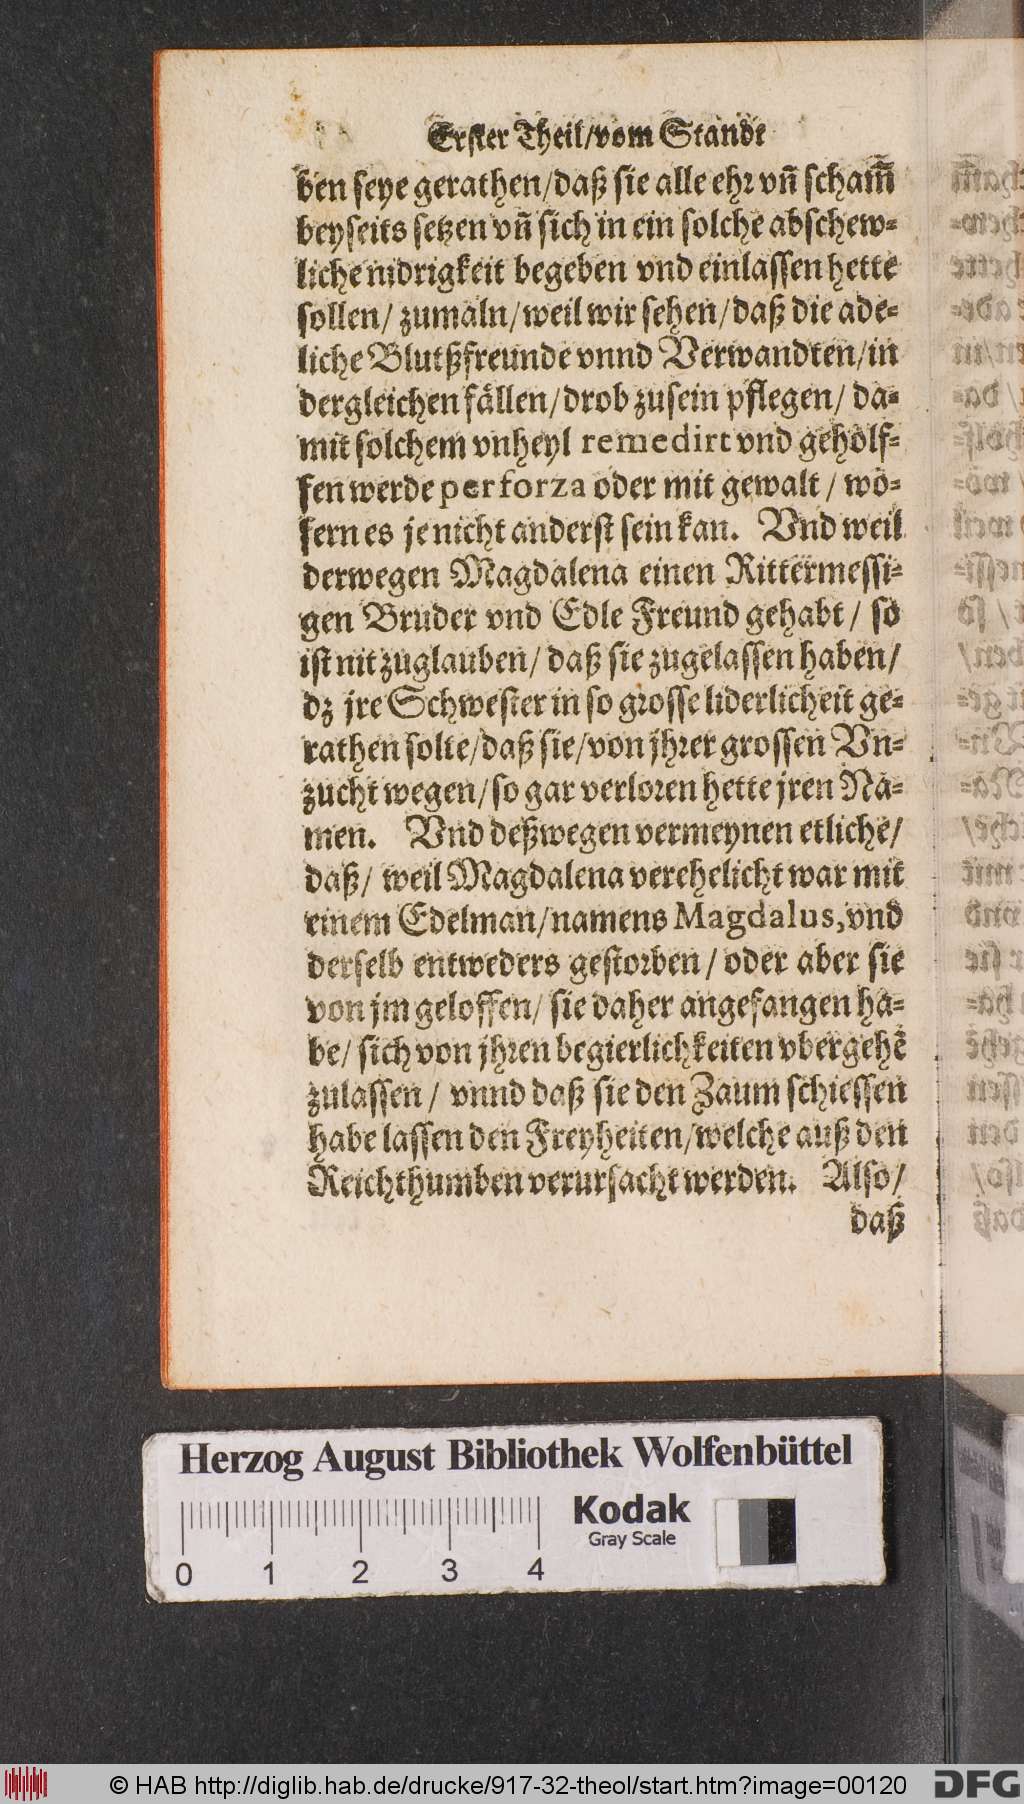 Erster Theil/vom Stande
ben seye gerathen/daß sie alle ehr vñ scham̃
beyseits setzen vñ sich in ein solche abschew-
liche nidrigkeit begeben vnd einlassen hette
sollen/ zumaln/weil wir sehen/daß die ade-
liche Blutßfreunde vnnd Verwandten/in
dergleichen fällen/drob zusein pflegen/ da-
mit solchem vnheyl remedirt vnd geholf-
fen werde perforza oder mit gewalt / wo-
fern es je nicht anderst sein kan. Vnd weil
derwegen Magdalena einen Rittermessi-
gen Bruder vnd Edle Freund gehabt / so
ist nit zuglauben/ daß sie zugelassen haben/
dz jre Schwester in so grosse liderlicheit ge-
rathen solte/daß sie/von jhrer grossen Vn-
zucht wegen/so gar verloren hette jren Na-
men. Vnd deßwegen vermeynen etliche/
daß/ weil Magdalena verehelicht war mit
einem Edelman/namens Magdalus, vnd
derselb entweders gestorben / oder aber sie
von jm geloffen/ sie daher angefangen ha-
be/ sich von jhren begierlichkeiten vbergehẽ
zulassen / vnnd daß sie den Zaum schiessen
habe lassen den Freyheiten/welche auß den
Reichthumben verursacht werden. Also/
daß
Herzog August Bibliothek Wolfenbüttel
Kodak
Gray Scale
0 1 2 3 4
© HAB http://diglib.hab.de/drucke/917-32-theol/start.htm?image=00120
DFG